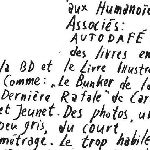 aux Humanoïd
Associés:
AUTODAFÉ
des livres en
la BD et le Livre Illustr
Comme: „Le Bunker de la
Dernière Rafale" de Car
et Jeunet. Des photos, un
peu gris, du court
métrage. Le trop habile